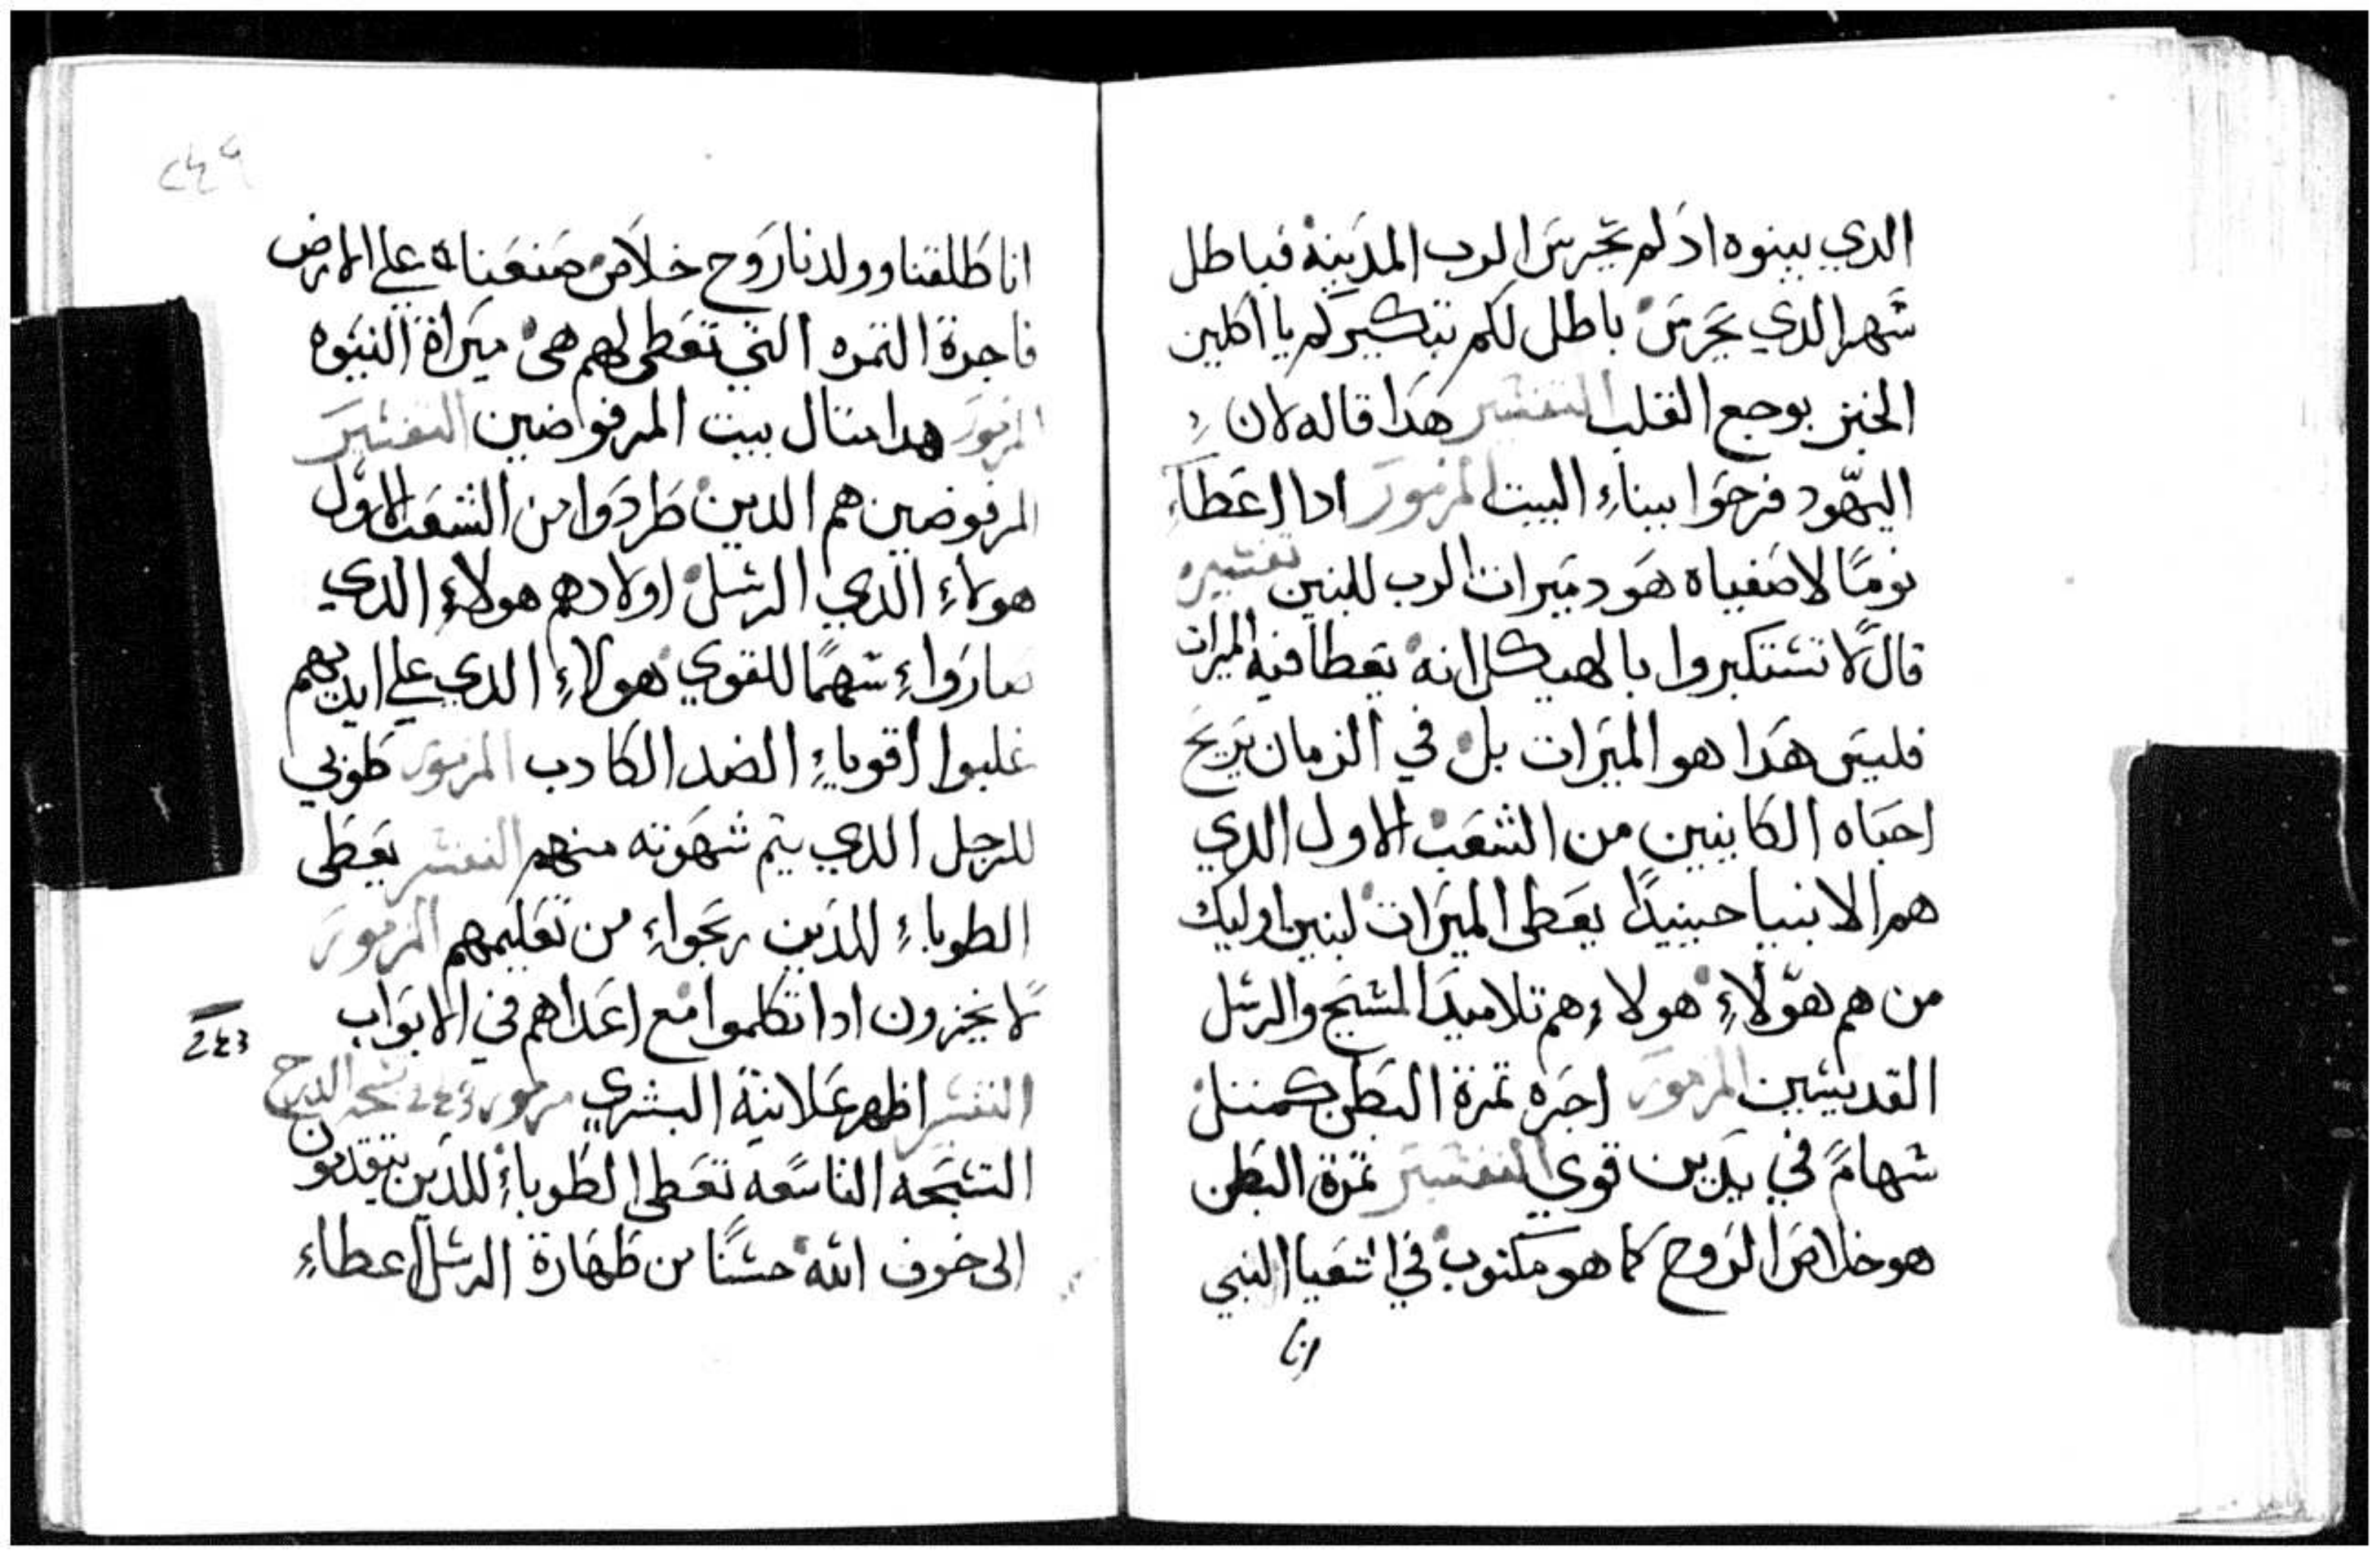 الدي يبنوه اد لم يحرس الرب المدينة فباطل
شهر الدي يحرس باطل لكم تبكيركم يا اكلين
الخبز بوجع القلب التفسير هدا قاله لان
اليهود فرحوا ببناء البيت المزمور ادا اعطاء
نومًا لاصفياه هود ميرات الرب للبنين تفسيره
قال لا تستكبروا بالهيكل انه يعطا فيه الميرات
فليس هدا هو الميرات بل في الزمان يريح
احباه الكاينين من الشعب الاول الدي
هم الانبيا حينيدًا يعطى الميرات لبنين اوليك
من هم هولاء هولاء هم تلاميد المسيح والرسل
القديسين المزمور اجره تمرة البطن كمتل
سهام في يدين قوي التفسير تمرة البطن
هو خلاص الروح كما هو مكتوب في اشعيا النبي
انا
انا طلقنا وولدنا روح خلاص صنعناه على الارض
فاجرة التمره التي تعطى لهم هى ميراة النبوه
المزمور هدا متال بيت المرفوضين التفسير
المرفوضين هم الدين طردوا من الشعب الاول
هولاء الدي الرسل اولادهم هولاء الدي
صاروا سهمًا للقوي هولاء الدي على ايديهم
غلبوا اقوياء الضد الكادب المزمور طوبي
للرجل الدي يتم شهوته منهم التفسر يعطى
الطوباء للدين ربحواء من تعليمهم المزمور
لا يخزون ادا تكلموا مع اعداهم في الابواب
التفسر اظهر علانية البشري مزمور تسبحة الدرج
التسبحه التاسعه تعطى الطوباء للدين يتقدمون
الى خوف الله حسنًا من طهارة الرسل اعطاء